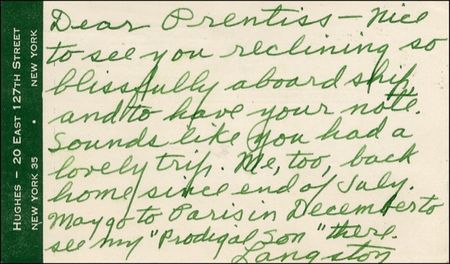 HUGHES — 20 EAST 127TH STREET
NEW YORK 35 • NEW YORK
Dear Prentiss — Nice
to see you reclining so
blissfully aboard ship,
and to have your note.
Sounds like you had a
lovely trip. Me, too, back
home since end of July.
May go to Paris in December to
see my "Prodigal Son" there.
Langston